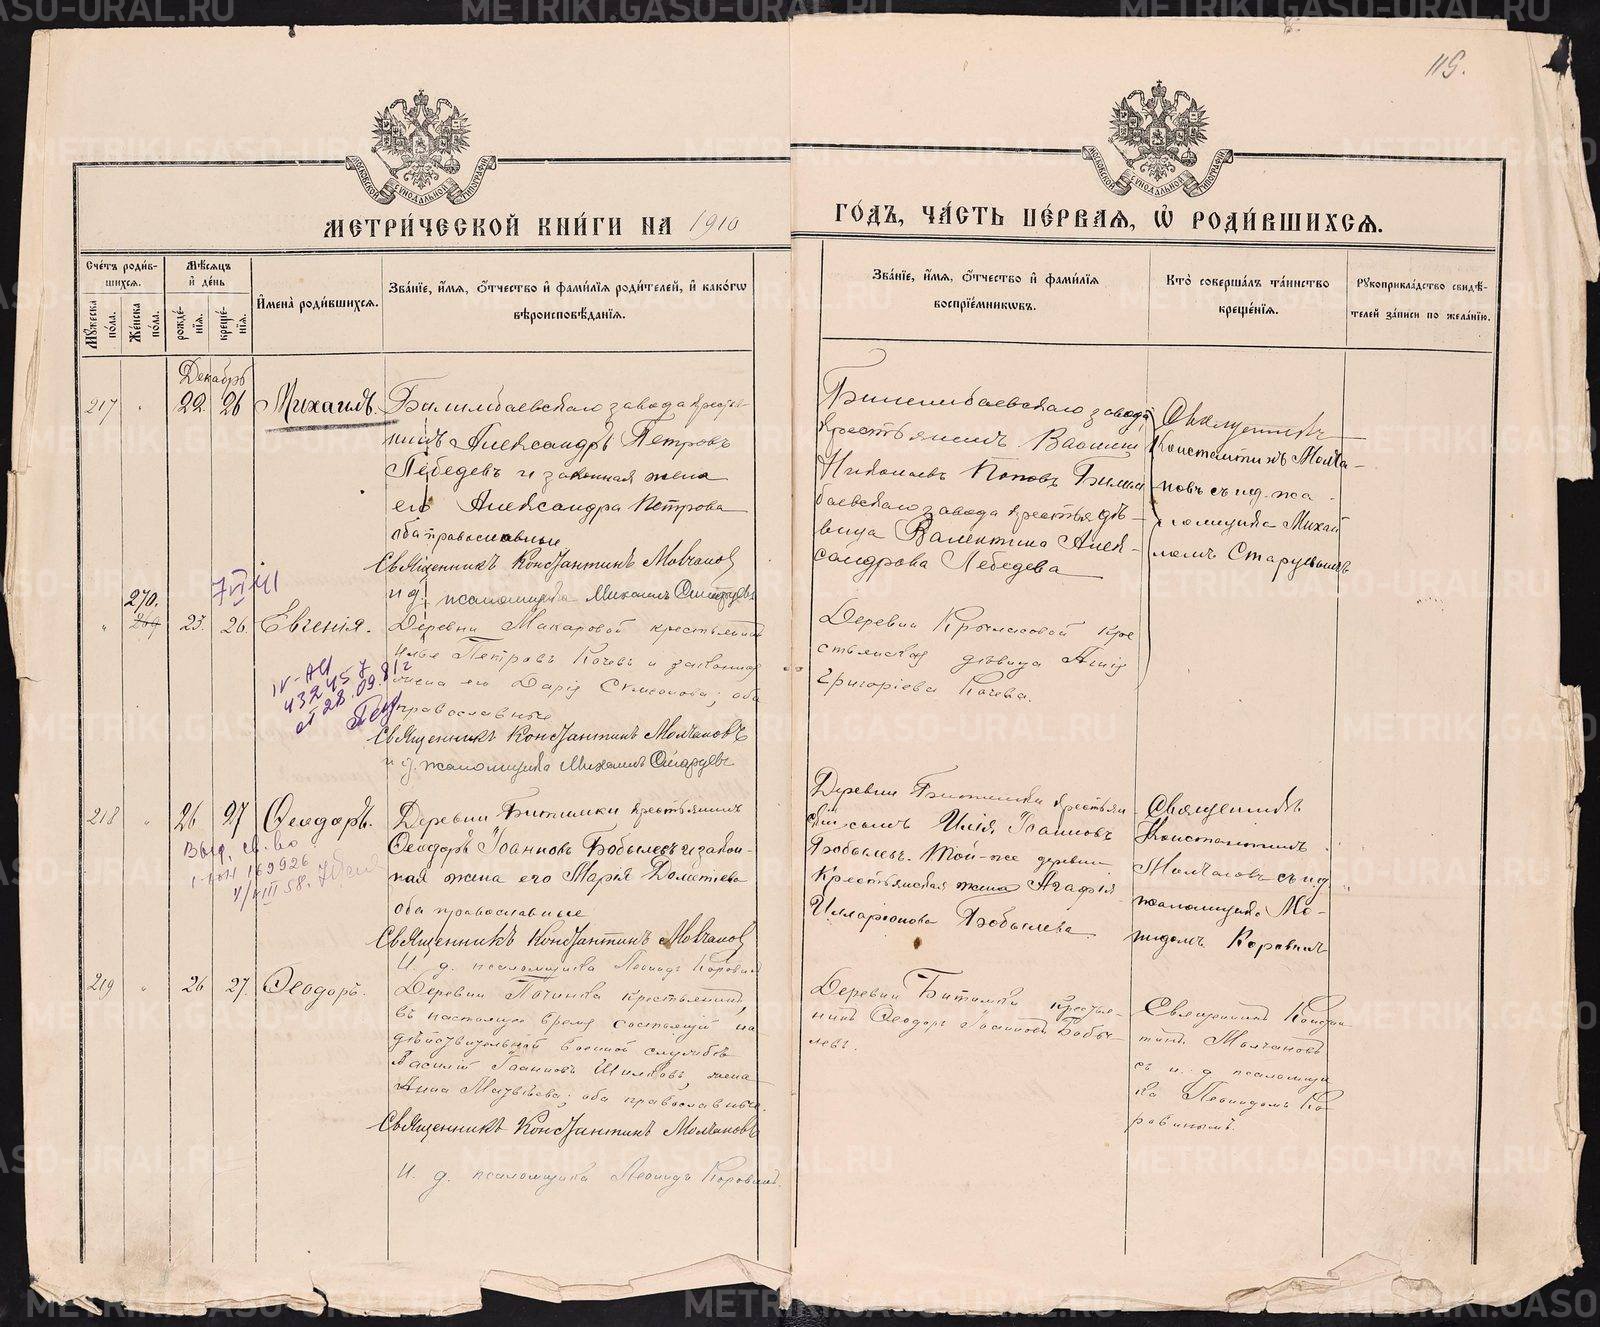 115.
МЕТРИ́ЧЕСКОЙ КНИ́ГИ НА 1910
ГО́ДЪ, ЧА́СТЬ ПЕ́РВАЯ, Ѡ҆ РОДИ́ВШИХСЯ.
Сче́тъ роди́вшихся.
Му́жеска по́ла.
Же́нска по́ла.
Мѣ́сяцъ и҆ де́нь
рожде́нїя.
креще́нїя.
И҆мена̀ роди́вшихся.
Зва́нїе, и҆́мя, ѻ҆́тчество и҆ фами́лїя роди́телей, и҆ како́гѡ вѣроисповѣ́данїя.
Зва́нїе, и҆́мя, ѻ҆́тчество и҆ фами́лїя воспрїе́мникѡвъ.
Кто̀ соверша́лъ та́инство креще́нїя.
Рꙋкоприкла́дство свидѣ́телей за́писи по жела́нїю.
Декабрь
217 " 22 26 Михаилъ.
Билимбаевскаго завода крестья-
нинъ Александръ Петровъ
Лебедевъ и законная жена
его Александра Петрова
оба православные
Священникъ Константинъ Молчановъ
и д. псаломщика Михаилъ
Билимбаевскаго завода
крестьянинъ Василий
Николаевъ Поповъ Билим
баевскаго завода крестья дѣ-
вица Валентина Алек-
сандрова Лебедева
Священникъ
Константинъ Молча-
новъ съ и.д. пса-
ломщика Михаи
ломъ
270.
" 269 23. 26. Евгенія.
Деревни Макаровой крестьянинъ
Илья Петровъ Кочевъ и законная
жена его Дарія Симеонова; оба
православные
Священникъ Константинъ Молчановъ
и д. псаломщика Михаилъ
IV-АИ
432457
28.09.81г
Деревни Крыласовой кре
стьянская дѣвица
Григоріева Кочева.
218 " 26 27 Ѳеодоръ.
Выд. св-во
169926
4/VIII 58.
Деревни Битимки крестьянинъ
Ѳеодоръ Іоанновъ Бобылевъ и закон-
ная жена его Марія Дометіева
оба православные
Священникъ Константинъ Молчановъ
И. д. псаломщика Леонидъ Коровинъ
Деревни Битимки крестьян
скій сынъ Илія Іоанновъ
Бобылевъ. Той-же деревни
Крестьянская жена Агафія
Илларіонова Бобылева.
Священникъ
Константинъ
Молчановъ съ и д
псаломщика Ле-
нидомъ Коровинъ
219 " 26 27. Ѳеодоръ.
Деревни Починка крестьянинъ,
въ настоящее время состоящій на
дѣйствительной военной службѣ
Василій Іоанновъ Шилковъ, жена
Анна Матвѣева; оба православные.
Священникъ Константинъ Молчановъ
И. д. псаломщика Леонидъ Коровинъ.
Деревни Битимки крестья-
нинъ Ѳеодоръ Іоанновъ Бобы-
левъ.
Священникъ Констан
тинъ Молчановъ
съ и. д. псаломщи
ка Леонидомъ Ко-
ровинымъ.
METRIKI.GASO-URAL.RU